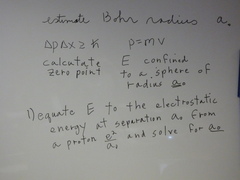 estimate Bohr radius a₀
Δp Δx ≥ ℏ p = mv
calculate E confined
zero point to a sphere of
radius a₀
1) equate E to the electrostatic
energy at separation a₀ from
a proton e²/a₀ and solve for a₀